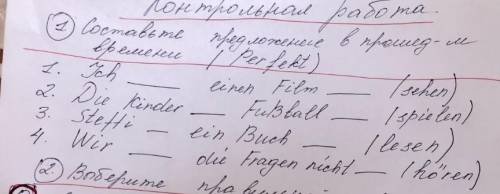 Контрольная работа.
① Составьте предложение в прошед-м
времени (Perfekt)
1. Ich ___ einen Film ___ (sehen)
2. Die Kinder ___ Fußball ___ (spielen)
3. Steffi ___ ein Buch ___ (lesen)
4. Wir ___ die Fragen nicht ___ (hören)
② Воберите